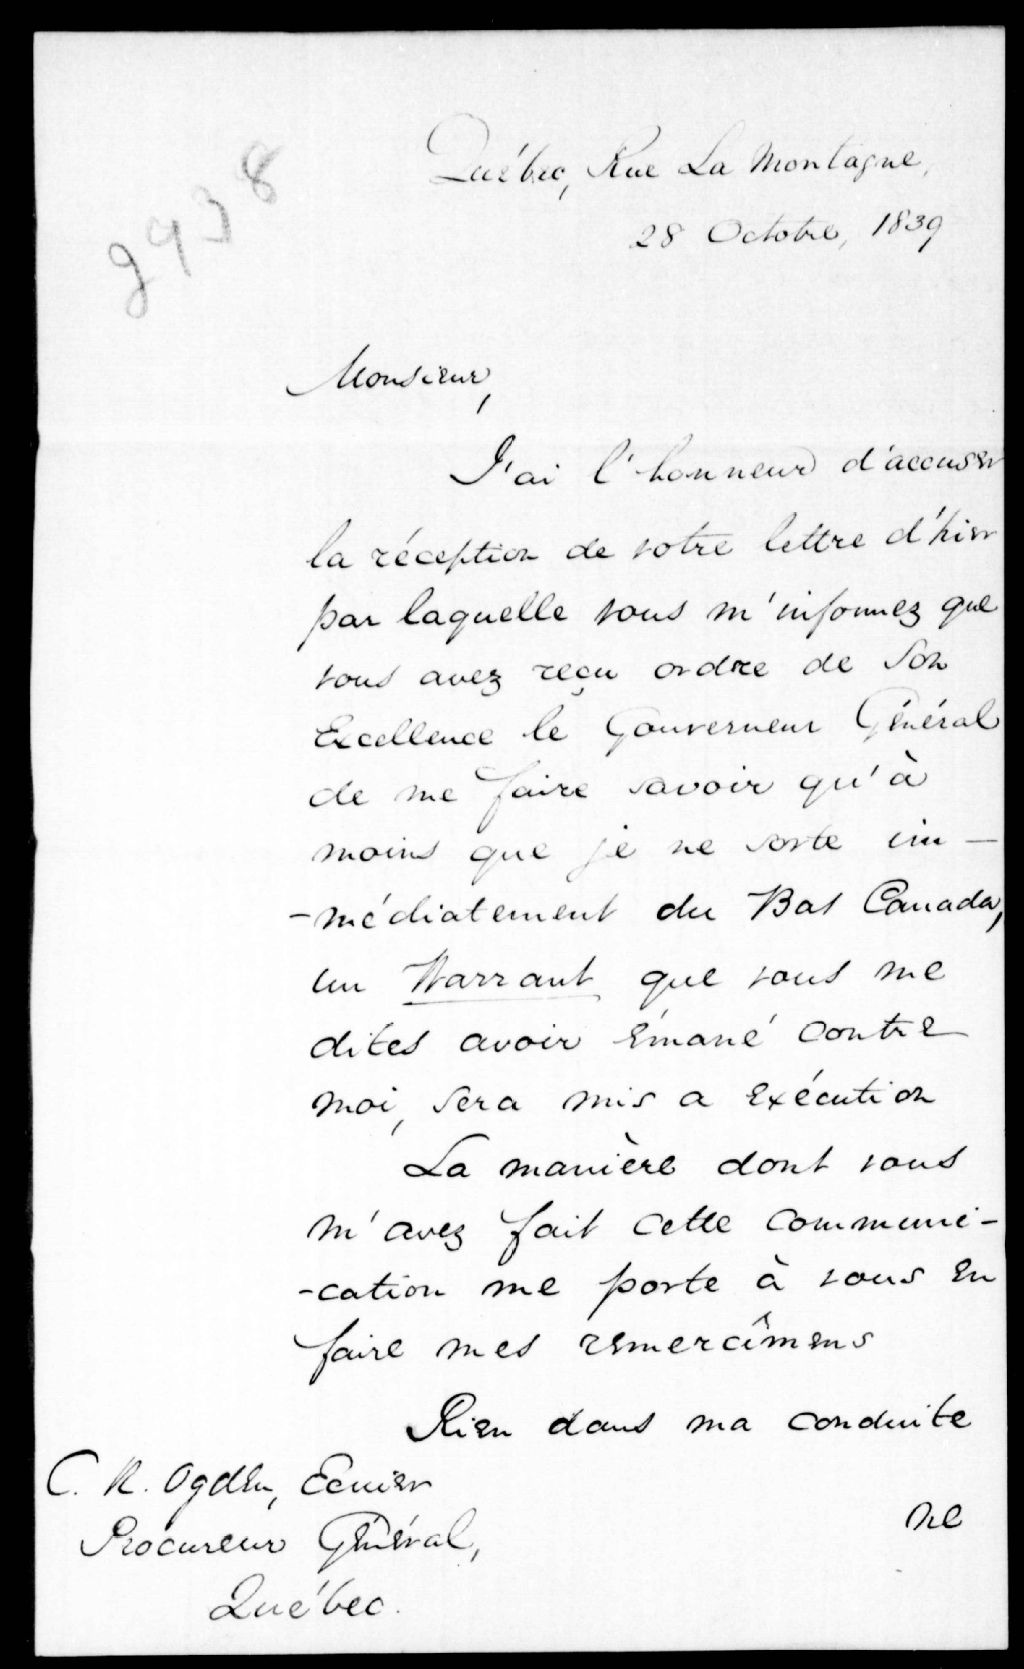 2938
Québec, Rue La Montagne,
28 Octobre, 1839
Monsieur,
J'ai l'honneur d'accuser
la réception de votre lettre d'hier
par laquelle vous m'informez que
vous avez reçu ordre de Son
Excellence le Gouverneur Général
de me faire savoir qu'à
moins que je ne sorte im-
-médiatement du Bas Canada,
un Warrant que vous me
dites avoir émané contre
moi, sera mis a exécution
La manière dont vous
m'avez fait cette communi-
-cation me porte à vous en
faire mes remercîmens
Rien dans ma conduite
ne
C. R. Ogden, Ecuier
Procureur Général,
Québec.